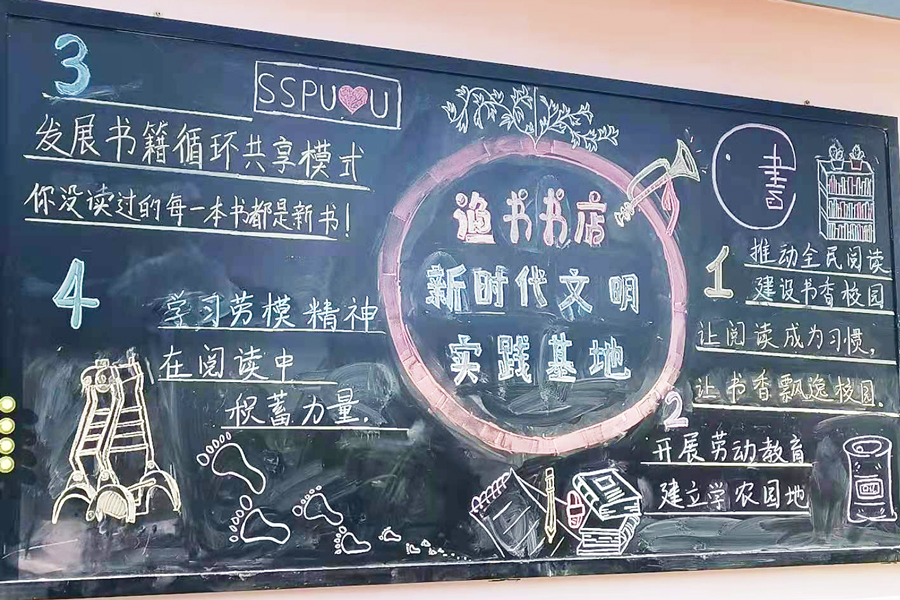 渔书书店
新时代文明
实践基地
書
1
推动全民阅读
建设书香校园
让阅读成为习惯,
让书香飘逸校园.
2
开展劳动教育
建立学农园地
3
SSPU U
发展书籍循环共享模式
你没读过的每一本书都是新书!
4
学习劳模精神
在阅读中
积蓄力量.